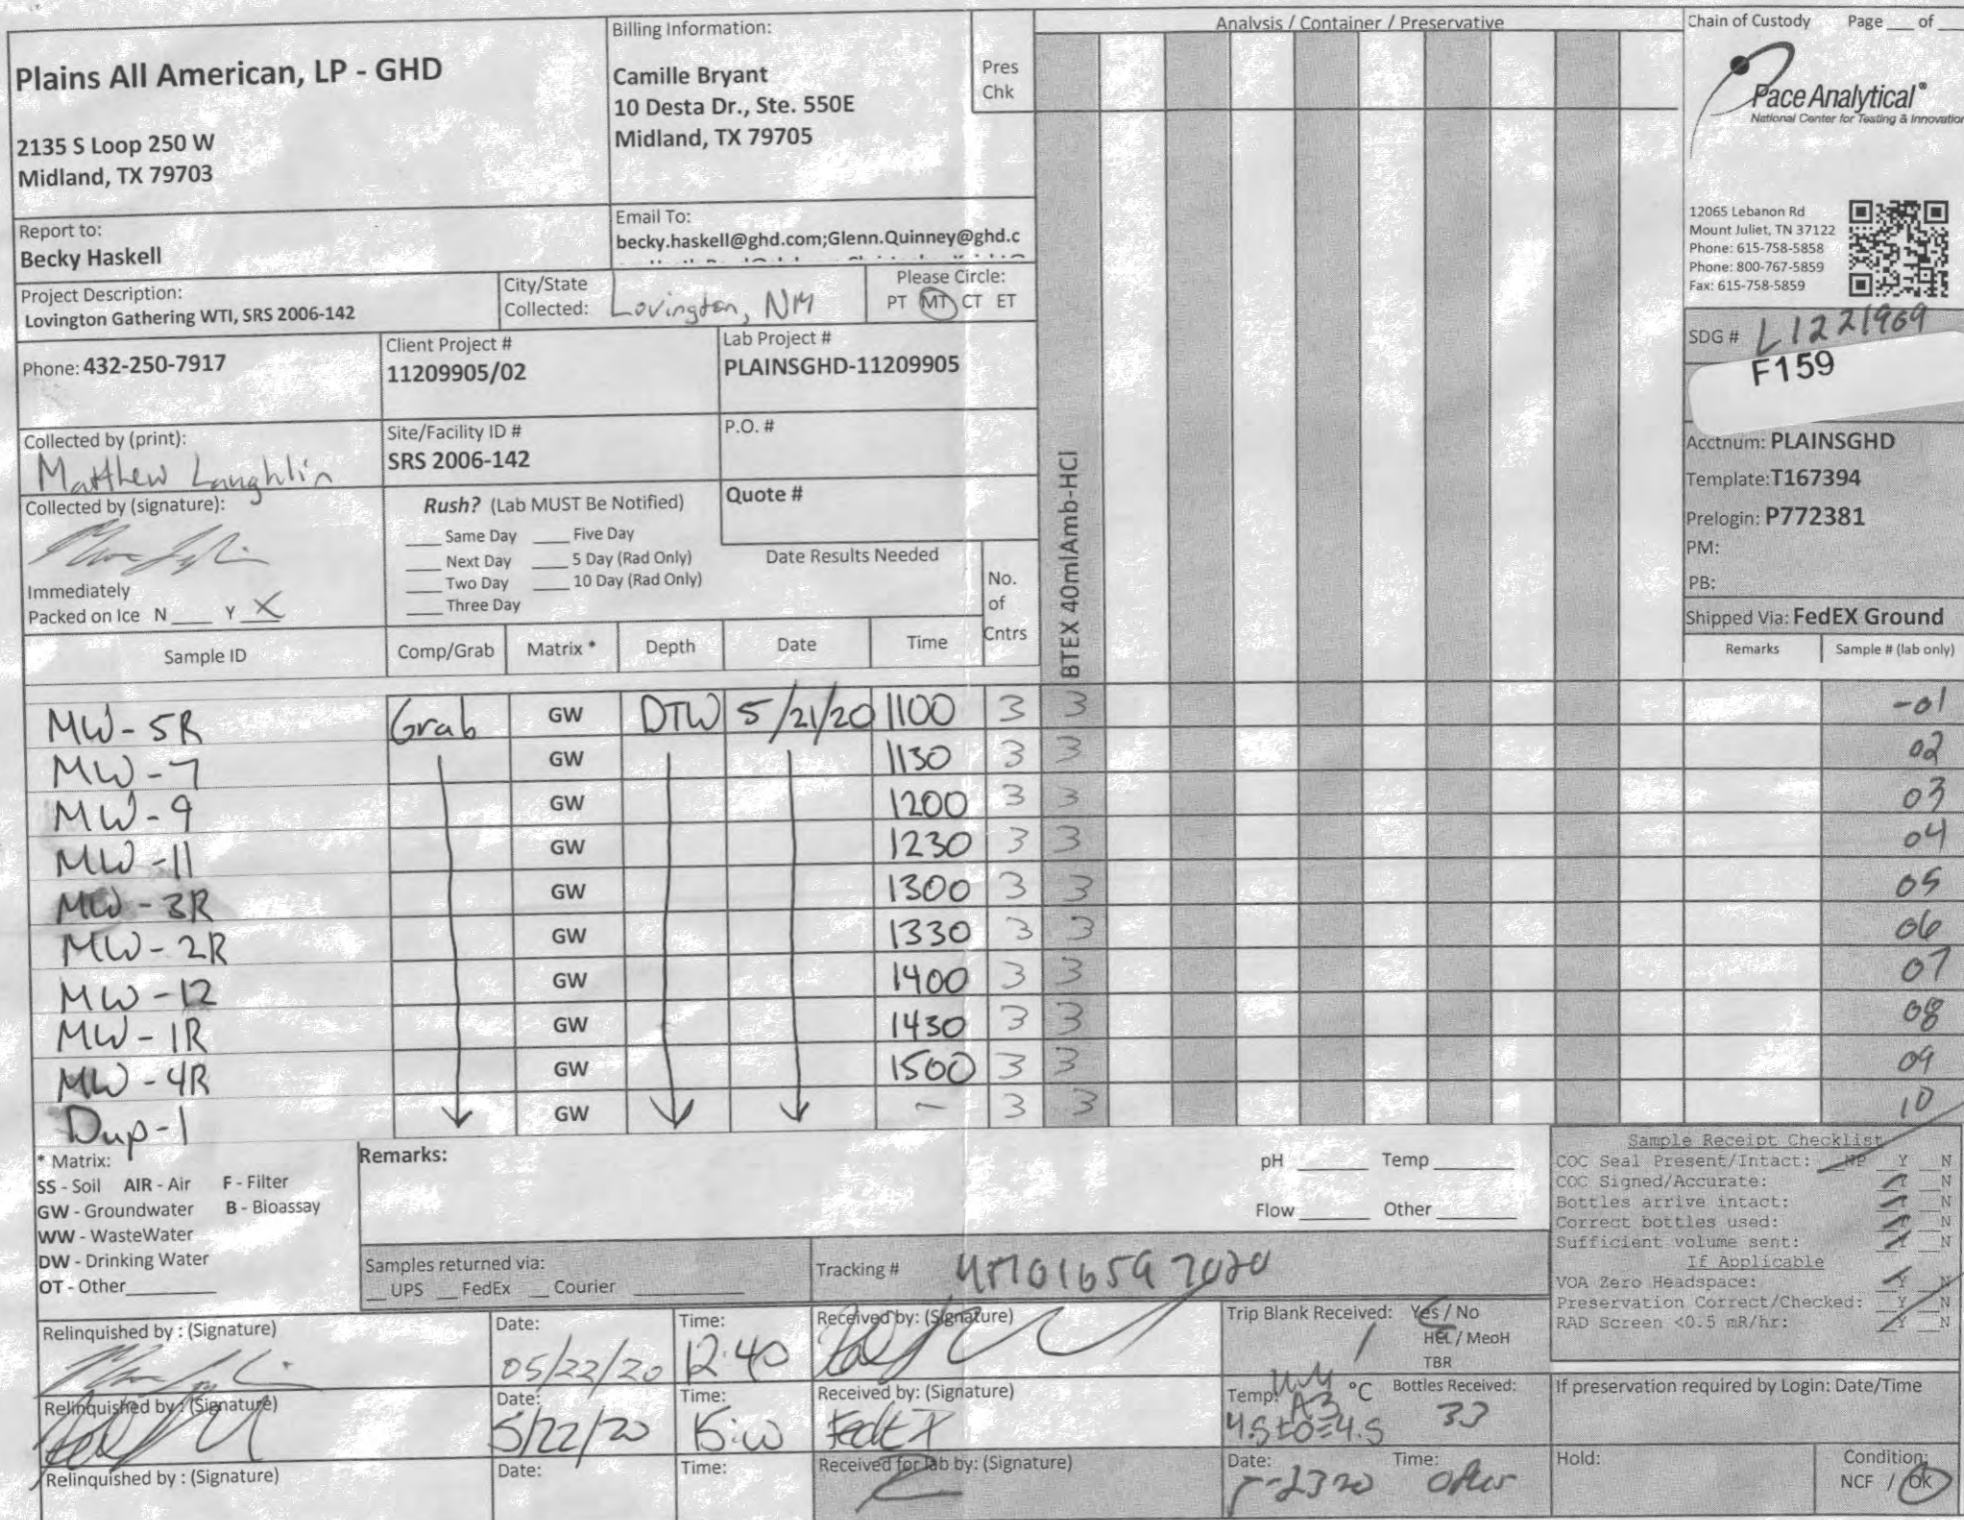 Plains All American, LP - GHD
2135 S Loop 250 W
Midland, TX 79703
Billing Information:
Camille Bryant
10 Desta Dr., Ste. 550E
Midland, TX 79705
Pres
Chk
Analysis / Container / Preservative
Chain of Custody Page ___ of ___
Pace Analytical®
National Center for Testing & Innovation
12065 Lebanon Rd
Mount Juliet, TN 37122
Phone: 615-758-5858
Phone: 800-767-5859
Fax: 615-758-5859
Report to:
Becky Haskell
Email To:
becky.haskell@ghd.com;Glenn.Quinney@ghd.c
Project Description:
Lovington Gathering WTI, SRS 2006-142
City/State
Collected: Lovington, NM
Please Circle:
PT MT CT ET
SDG # L1221969
F159
Phone: 432-250-7917
Client Project #
11209905/02
Lab Project #
PLAINSGHD-11209905
Collected by (print):
Matthew Laughlin
Site/Facility ID #
SRS 2006-142
P.O. #
Acctnum: PLAINSGHD
Template: T167394
Prelogin: P772381
PM:
PB:
Shipped Via: FedEX Ground
Collected by (signature):
Immediately
Packed on Ice N ___ Y X
Rush? (Lab MUST Be Notified)
___ Same Day ___ Five Day
___ Next Day ___ 5 Day (Rad Only)
___ Two Day ___ 10 Day (Rad Only)
___ Three Day
Quote #
Date Results Needed
No.
of
Cntrs
BTEX 40mlAmb-HCl
Sample ID Comp/Grab Matrix * Depth Date Time Remarks Sample # (lab only)
MW-5R Grab GW DTW 5/21/20 1100 3 3 -01
MW-7 GW 1130 3 3 02
MW-9 GW 1200 3 3 03
MW-11 GW 1230 3 3 04
MW-3R GW 1300 3 3 05
MW-2R GW 1330 3 3 06
MW-12 GW 1400 3 3 07
MW-1R GW 1430 3 3 08
MW-4R GW 1500 3 3 09
Dup-1 GW - 3 3 10
* Matrix:
SS - Soil AIR - Air F - Filter
GW - Groundwater B - Bioassay
WW - WasteWater
DW - Drinking Water
OT - Other
Remarks:
pH ___ Temp ___
Flow ___ Other ___
Samples returned via:
__ UPS __ FedEx __ Courier
Tracking #
Sample Receipt Checklist
COC Seal Present/Intact: NP Y N
COC Signed/Accurate: Y N
Bottles arrive intact: Y N
Correct bottles used: Y N
Sufficient volume sent: Y N
If Applicable
VOA Zero Headspace: Y N
Preservation Correct/Checked: Y N
RAD Screen <0.5 mR/hr: Y N
Relinquished by : (Signature)
Date:
05/22/20
Time:
12:40
Received by: (Signature)
Trip Blank Received: Yes / No
HCL / MeoH
TBR
Relinquished by : (Signature)
Date:
5/22/20
Time:
Received by: (Signature)
FedEX
Temp: °C
4.5±0=4.5
Bottles Received:
33
If preservation required by Login: Date/Time
Relinquished by : (Signature)
Date:
Time:
Received for lab by: (Signature)
Date:
Time:
Hold:
Condition:
NCF / OK